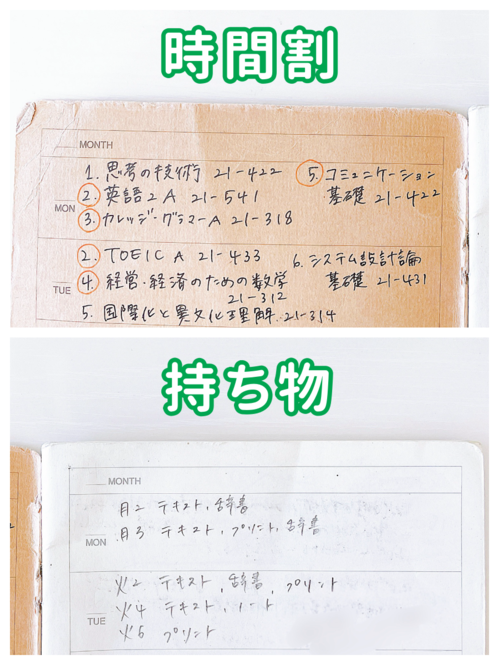 時間割
MONTH
MON
1. 思考の技術 21-422
② 英語2A 21-541
③ カレッジ・グラマーA 21-318
⑤ コミュニケーション
基礎 21-422
TUE
② TOEIC A 21-433
④ 経営・経済のための数学
21-312
5. 国際化と異文化理解 21-314
6. システム設計論
基礎 21-431
持ち物
MONTH
MON
月2 テキスト, 辞書
月3 テキスト, プリント, 辞書
TUE
火2 テキスト, 辞書, プリント
火4 テキスト, ノート
火5 プリント